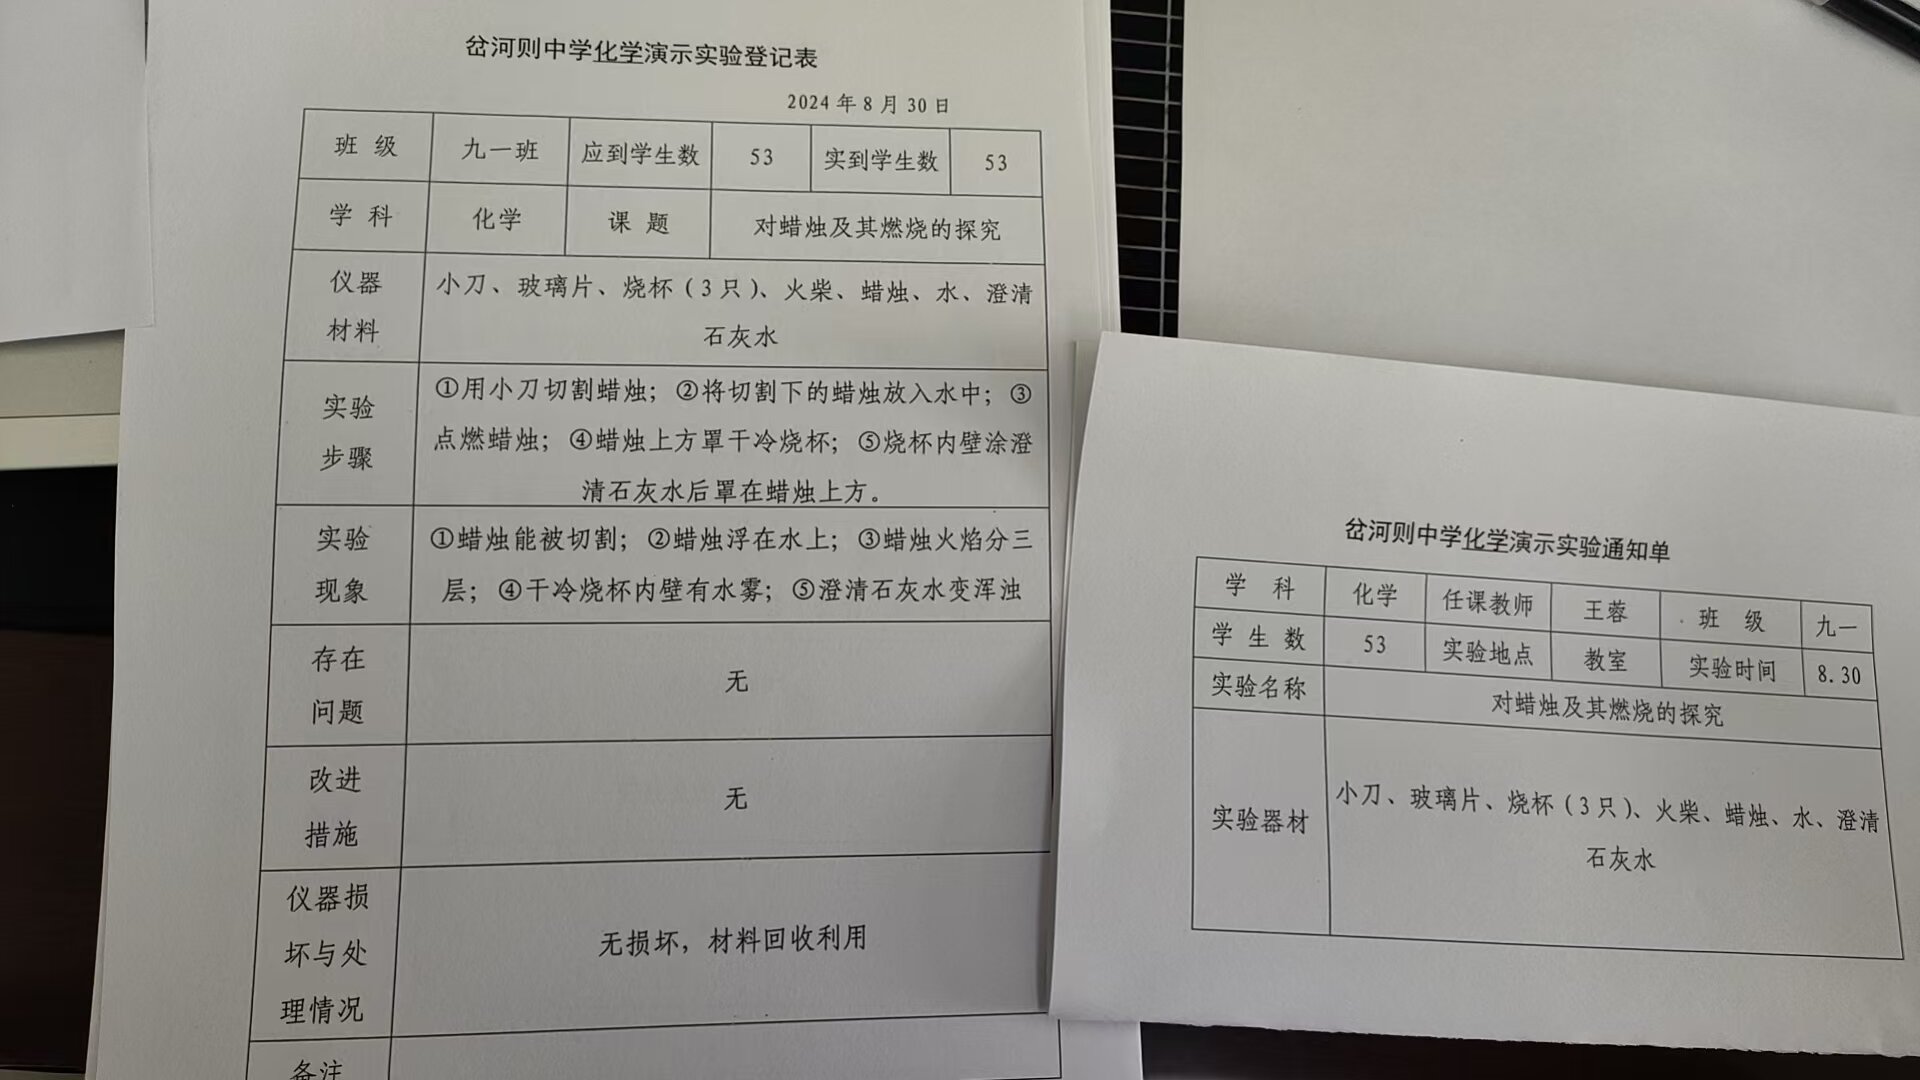 岔河则中学化学演示实验登记表
2024 年 8 月 30 日
班 级 九一班 应到学生数 53 实到学生数 53
学 科 化学 课 题 对蜡烛及其燃烧的探究
仪器
材料
小刀、玻璃片、烧杯（3 只）、火柴、蜡烛、水、澄清
石灰水
实验
步骤
①用小刀切割蜡烛；②将切割下的蜡烛放入水中；③
点燃蜡烛；④蜡烛上方罩干冷烧杯；⑤烧杯内壁涂澄
清石灰水后罩在蜡烛上方。
实验
现象
①蜡烛能被切割；②蜡烛浮在水上；③蜡烛火焰分三
层；④干冷烧杯内壁有水雾；⑤澄清石灰水变浑浊
存在
问题
无
改进
措施
无
仪器损
坏与处
理情况
无损坏，材料回收利用
备注
岔河则中学化学演示实验通知单
学 科 化学 任课教师 王蓉 班 级 九一
学 生 数 53 实验地点 教室 实验时间 8.30
实验名称 对蜡烛及其燃烧的探究
实验器材
小刀、玻璃片、烧杯（3 只）、火柴、蜡烛、水、澄清
石灰水